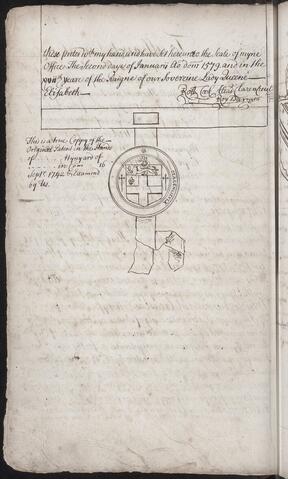 these prsts wth my hand, and have set hereunto the Seale of myne
Office The Second daye of January Ao dom 1579 and in the
yeare of the Raigne of our Sovereine Lady Queene
Elizabeth
Robt Cook Alias Clarenceux
Roy Darmes
This is a true Copy of the
Original Patent in the Hands
of Wynyard of
in Com 16
Sept. 1742 Examined
by Us.